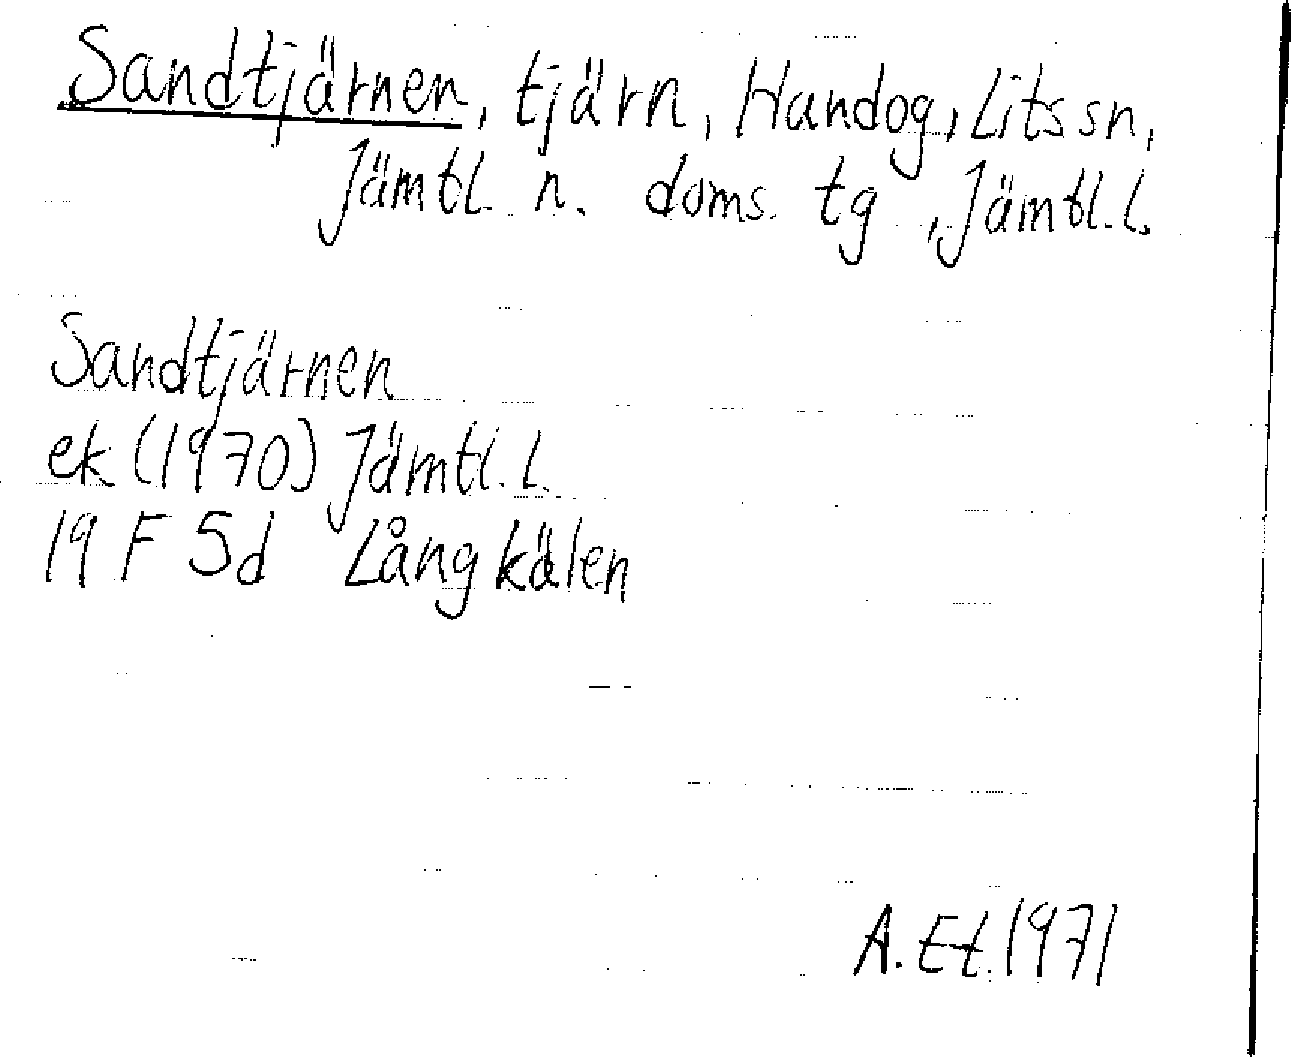 Sandtjärnen, tjärn, Handog, Lits sn,
Jämtl. n. doms. tg, Jämtl. l.
Sandtjärnen
ek (1970) Jämtl. l.
19 F 5d Långkälen
A. Et. 1971